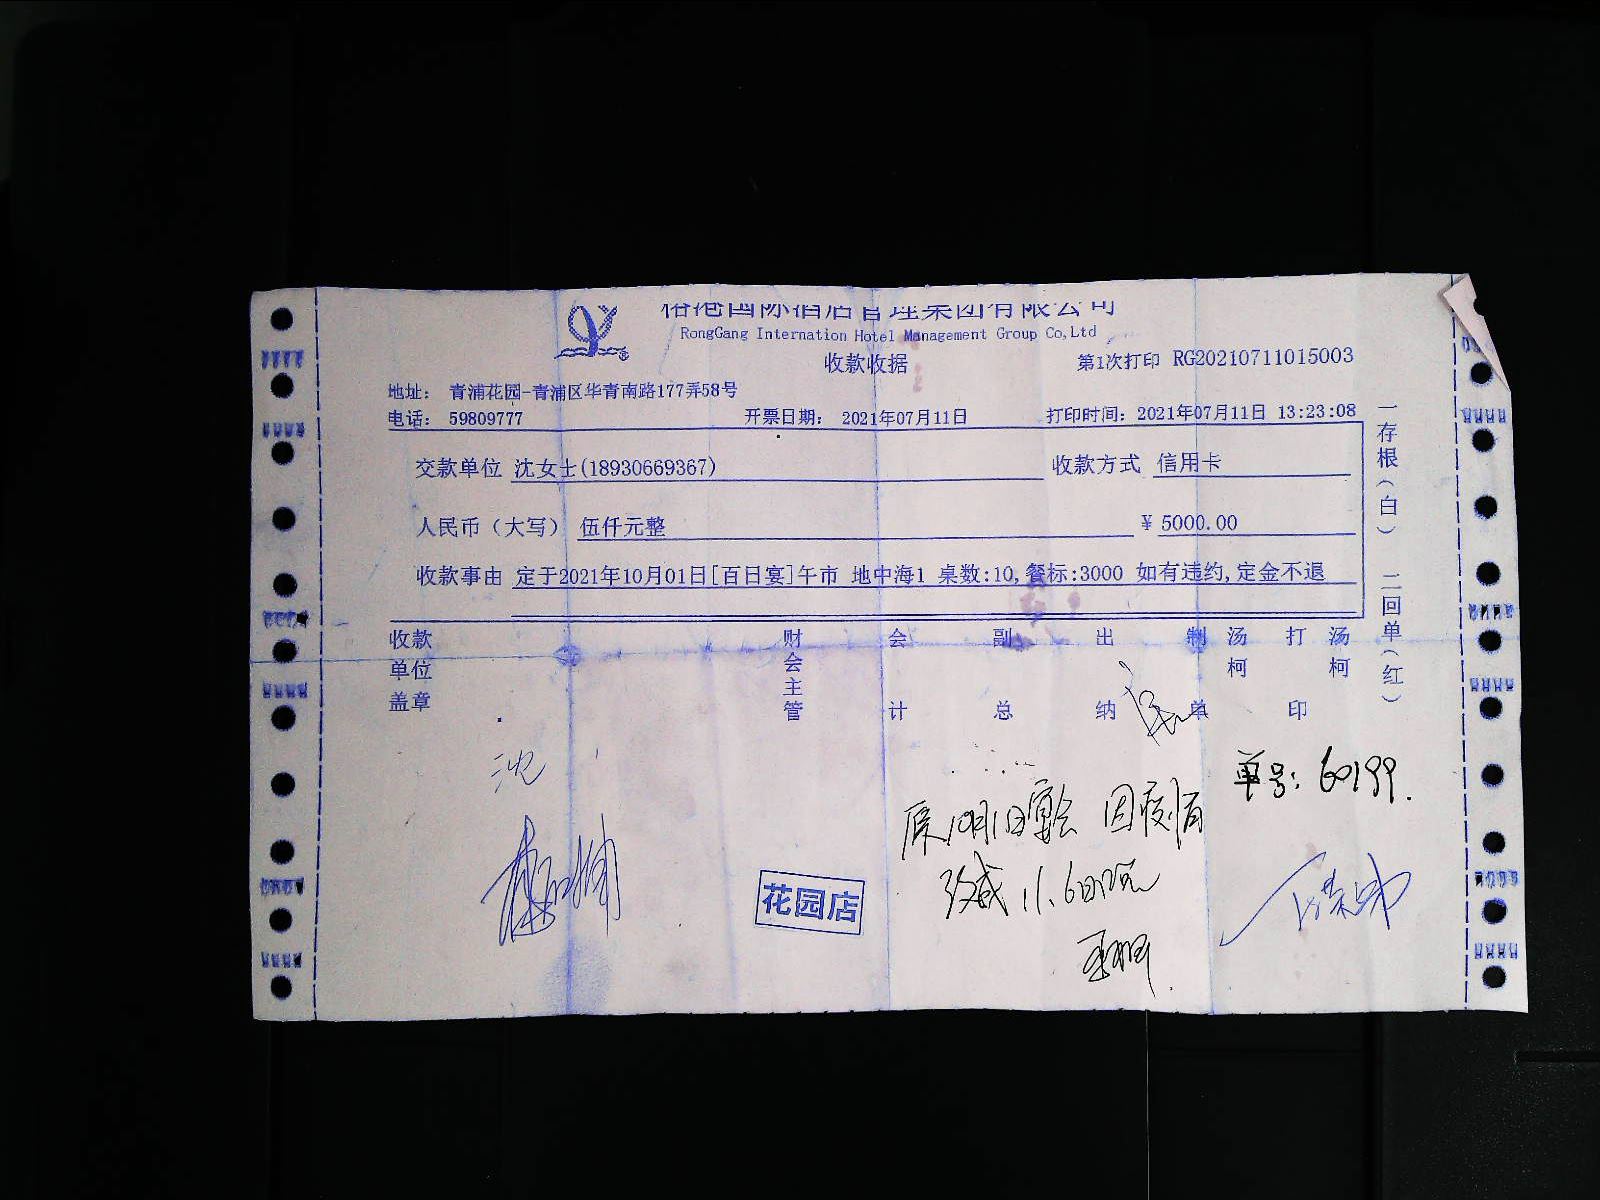 格港国际酒店管理集团有限公司
RongGang Internation Hotel Management Group Co,Ltd
收款收据 第1次打印 RG20210711015003
地址： 青浦花园-青浦区华青南路177弄58号
电话： 59809777 开票日期： 2021年07月11日 打印时间：2021年07月11日 13:23:08
交款单位 沈女士(18930669367) 收款方式 信用卡
人民币（大写） 伍仟元整 ¥ 5000.00
收款事由 定于2021年10月01日[百日宴]午市 地中海1 桌数:10,餐标:3000 如有违约,定金不退
一存根（白） 二回单（红）
收款单位盖章 财会主管 会计 副总 出纳 制单 汤柯 打印 汤柯
沈
单号：60199.
原10月1日宴会 因疫情
改成 11.6日
花园店